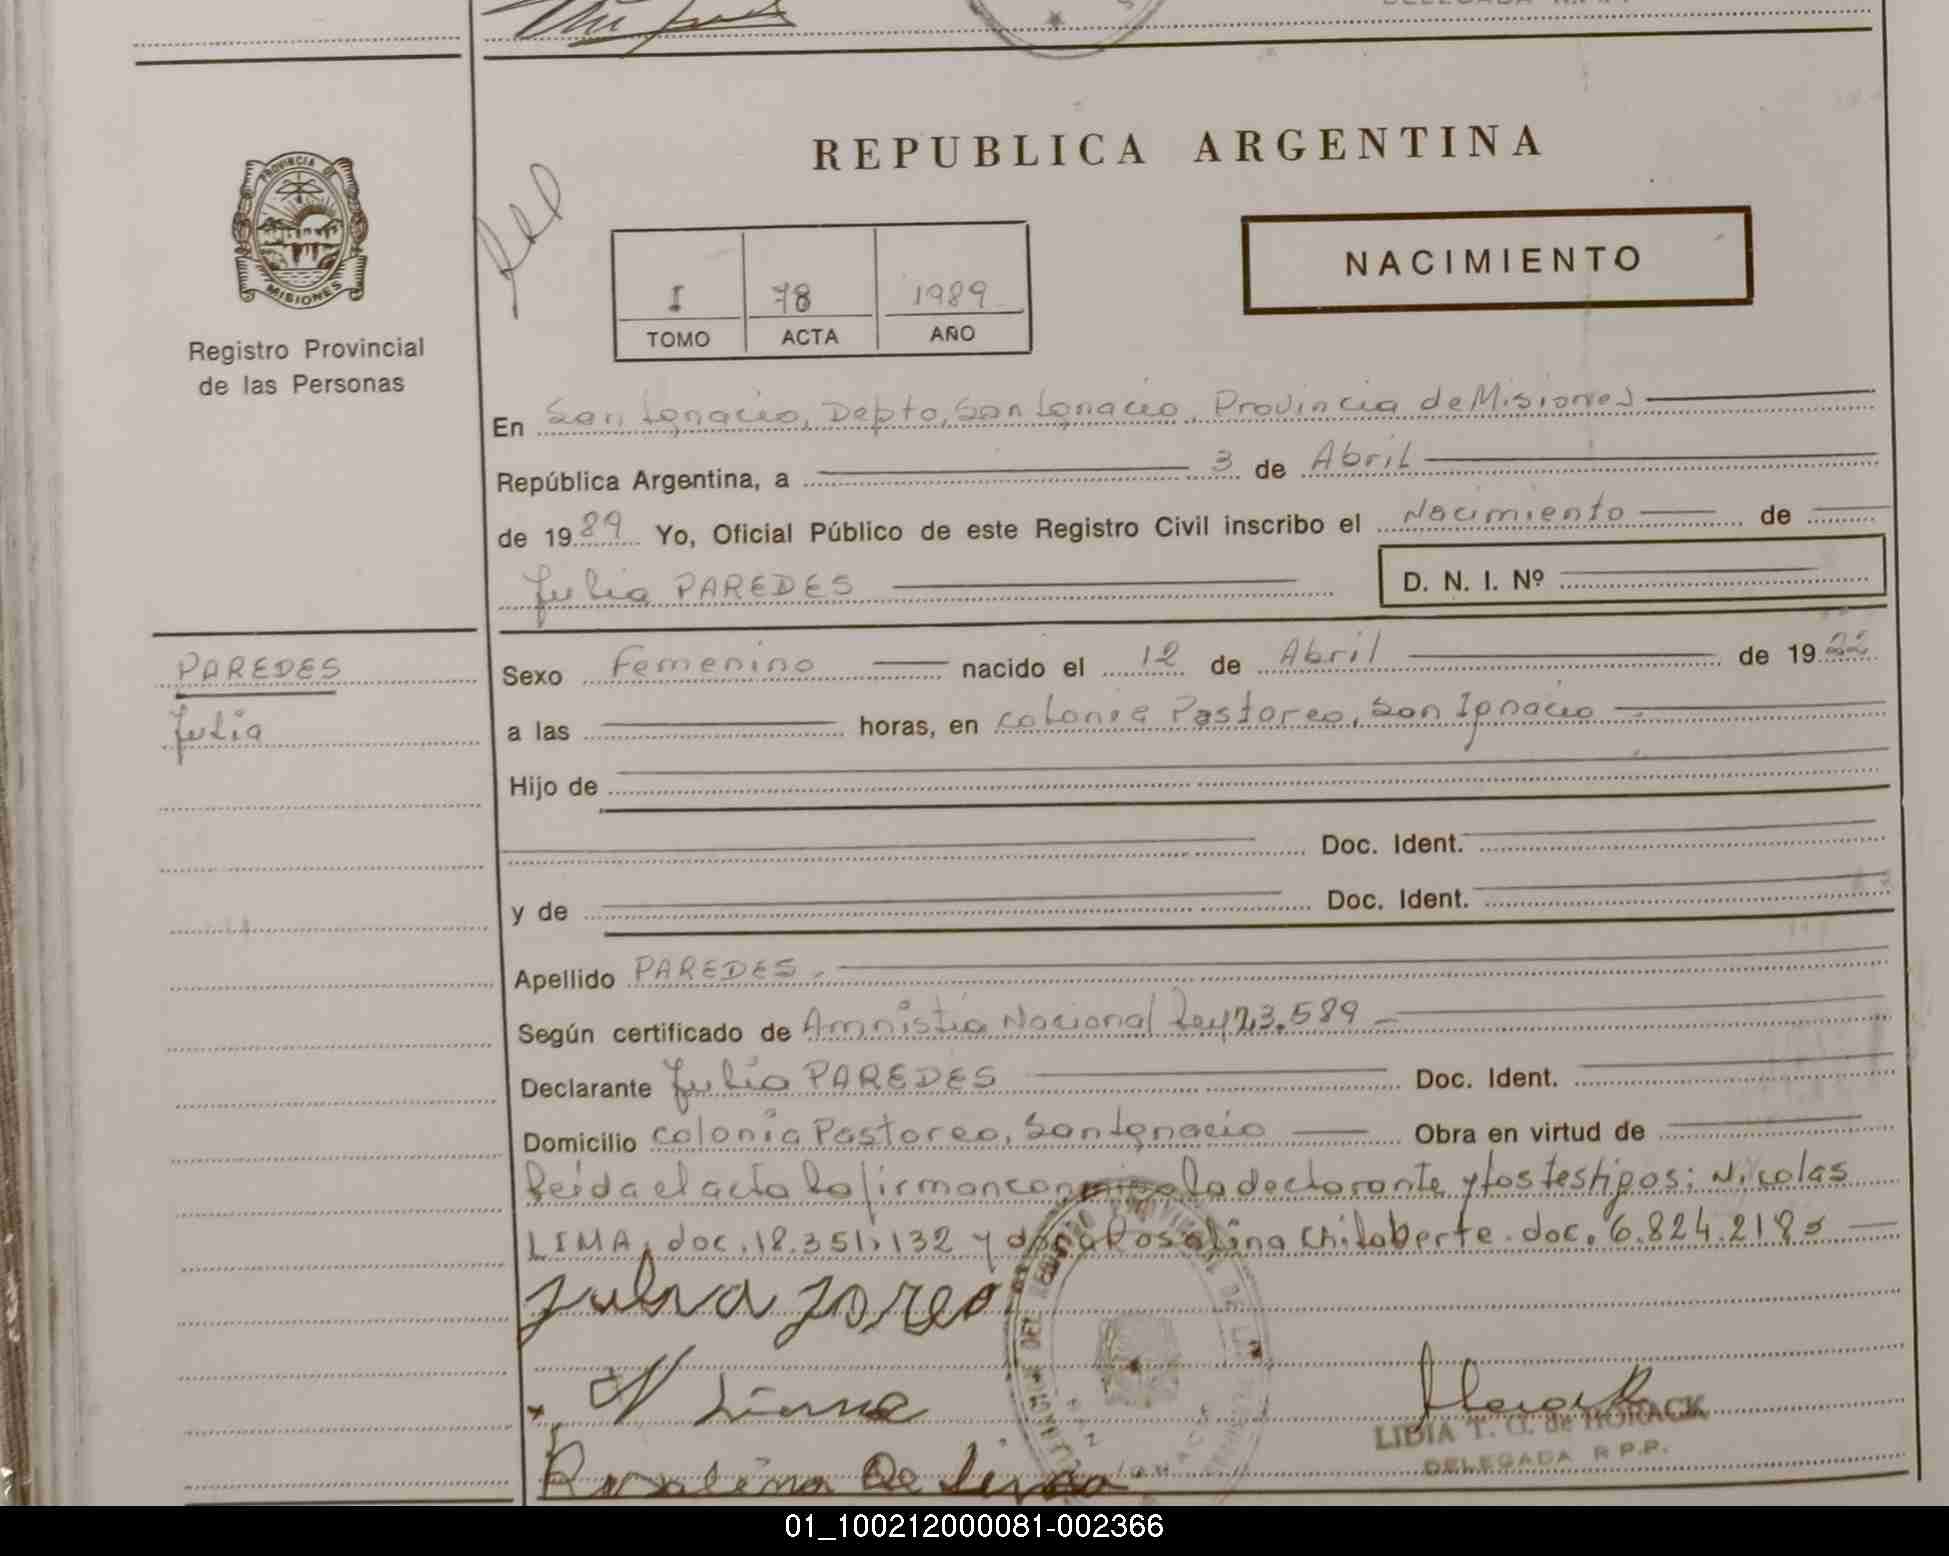 REPUBLICA ARGENTINA
PROVINCIA DE
MISIONES
Registro Provincial
de las Personas
I 78 1989
TOMO ACTA AÑO
NACIMIENTO
En San Ignacio, Depto, San Ignacio, Provincia de Misiones
República Argentina, a 3 de Abril
de 1989 Yo, Oficial Público de este Registro Civil inscribo el Nacimiento de
Julia PAREDES D. N. I. Nº
PAREDES
Julia
Sexo Femenino nacido el 12 de Abril de 1922
a las horas, en colonia Pastoreo, San Ignacio
Hijo de
Doc. Ident.
y de Doc. Ident.
Apellido PAREDES.
Según certificado de Amnistia Nacional Ley 23.589
Declarante Julia PAREDES Doc. Ident.
Domicilio colonia Pastoreo, San Ignacio Obra en virtud de
Leida el acta la firman conmigo la declarante y los testigos: Nicolas
LIMA, doc. 18.351.132 y doña Rosalina Chilaberte. doc. 6.824.218
N Lima
Rosalina De Lima
LIDIA T. G. de HORACK
DELEGADA R P.P.
01_100212000081-002366